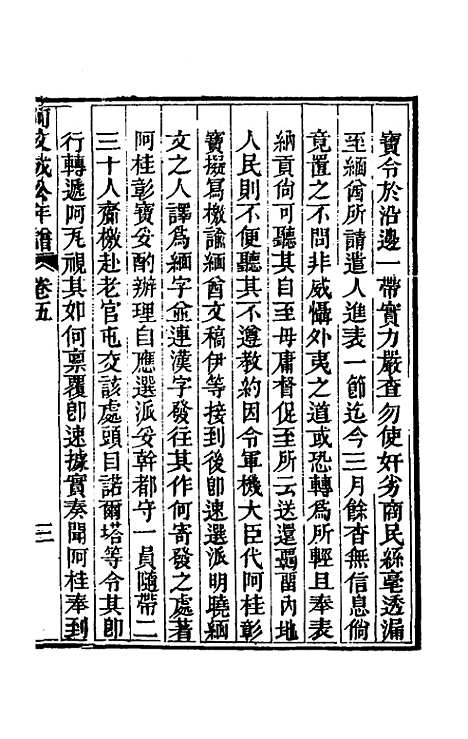 寶令於沿邊一帶實力嚴查勿使奸劣商民絲毫透漏
至緬酋所請遣人進表一節迄今三月餘杳無信息倘
竟置之不問非威懾外夷之道或恐轉爲所輕且奉表
納貢尙可聽其自至毋庸督促至所云送還羈留內地
人民則不便聽其不遵敎約因令軍機大臣代阿桂彰
寶擬寫檄諭緬酋文稿伊等接到後卽速選派明曉緬
文之人譯爲緬字並連漢字發往其作何寄發之處著
阿桂彰寶妥酌辦理自應選派妥幹都守一員隨帶二
三十人齎檄赴老官屯交該處頭目諾爾塔等令其卽
行轉遞阿瓦視其如何禀覆卽速據實奏聞阿桂奉到
阿文成公年譜 卷五 三